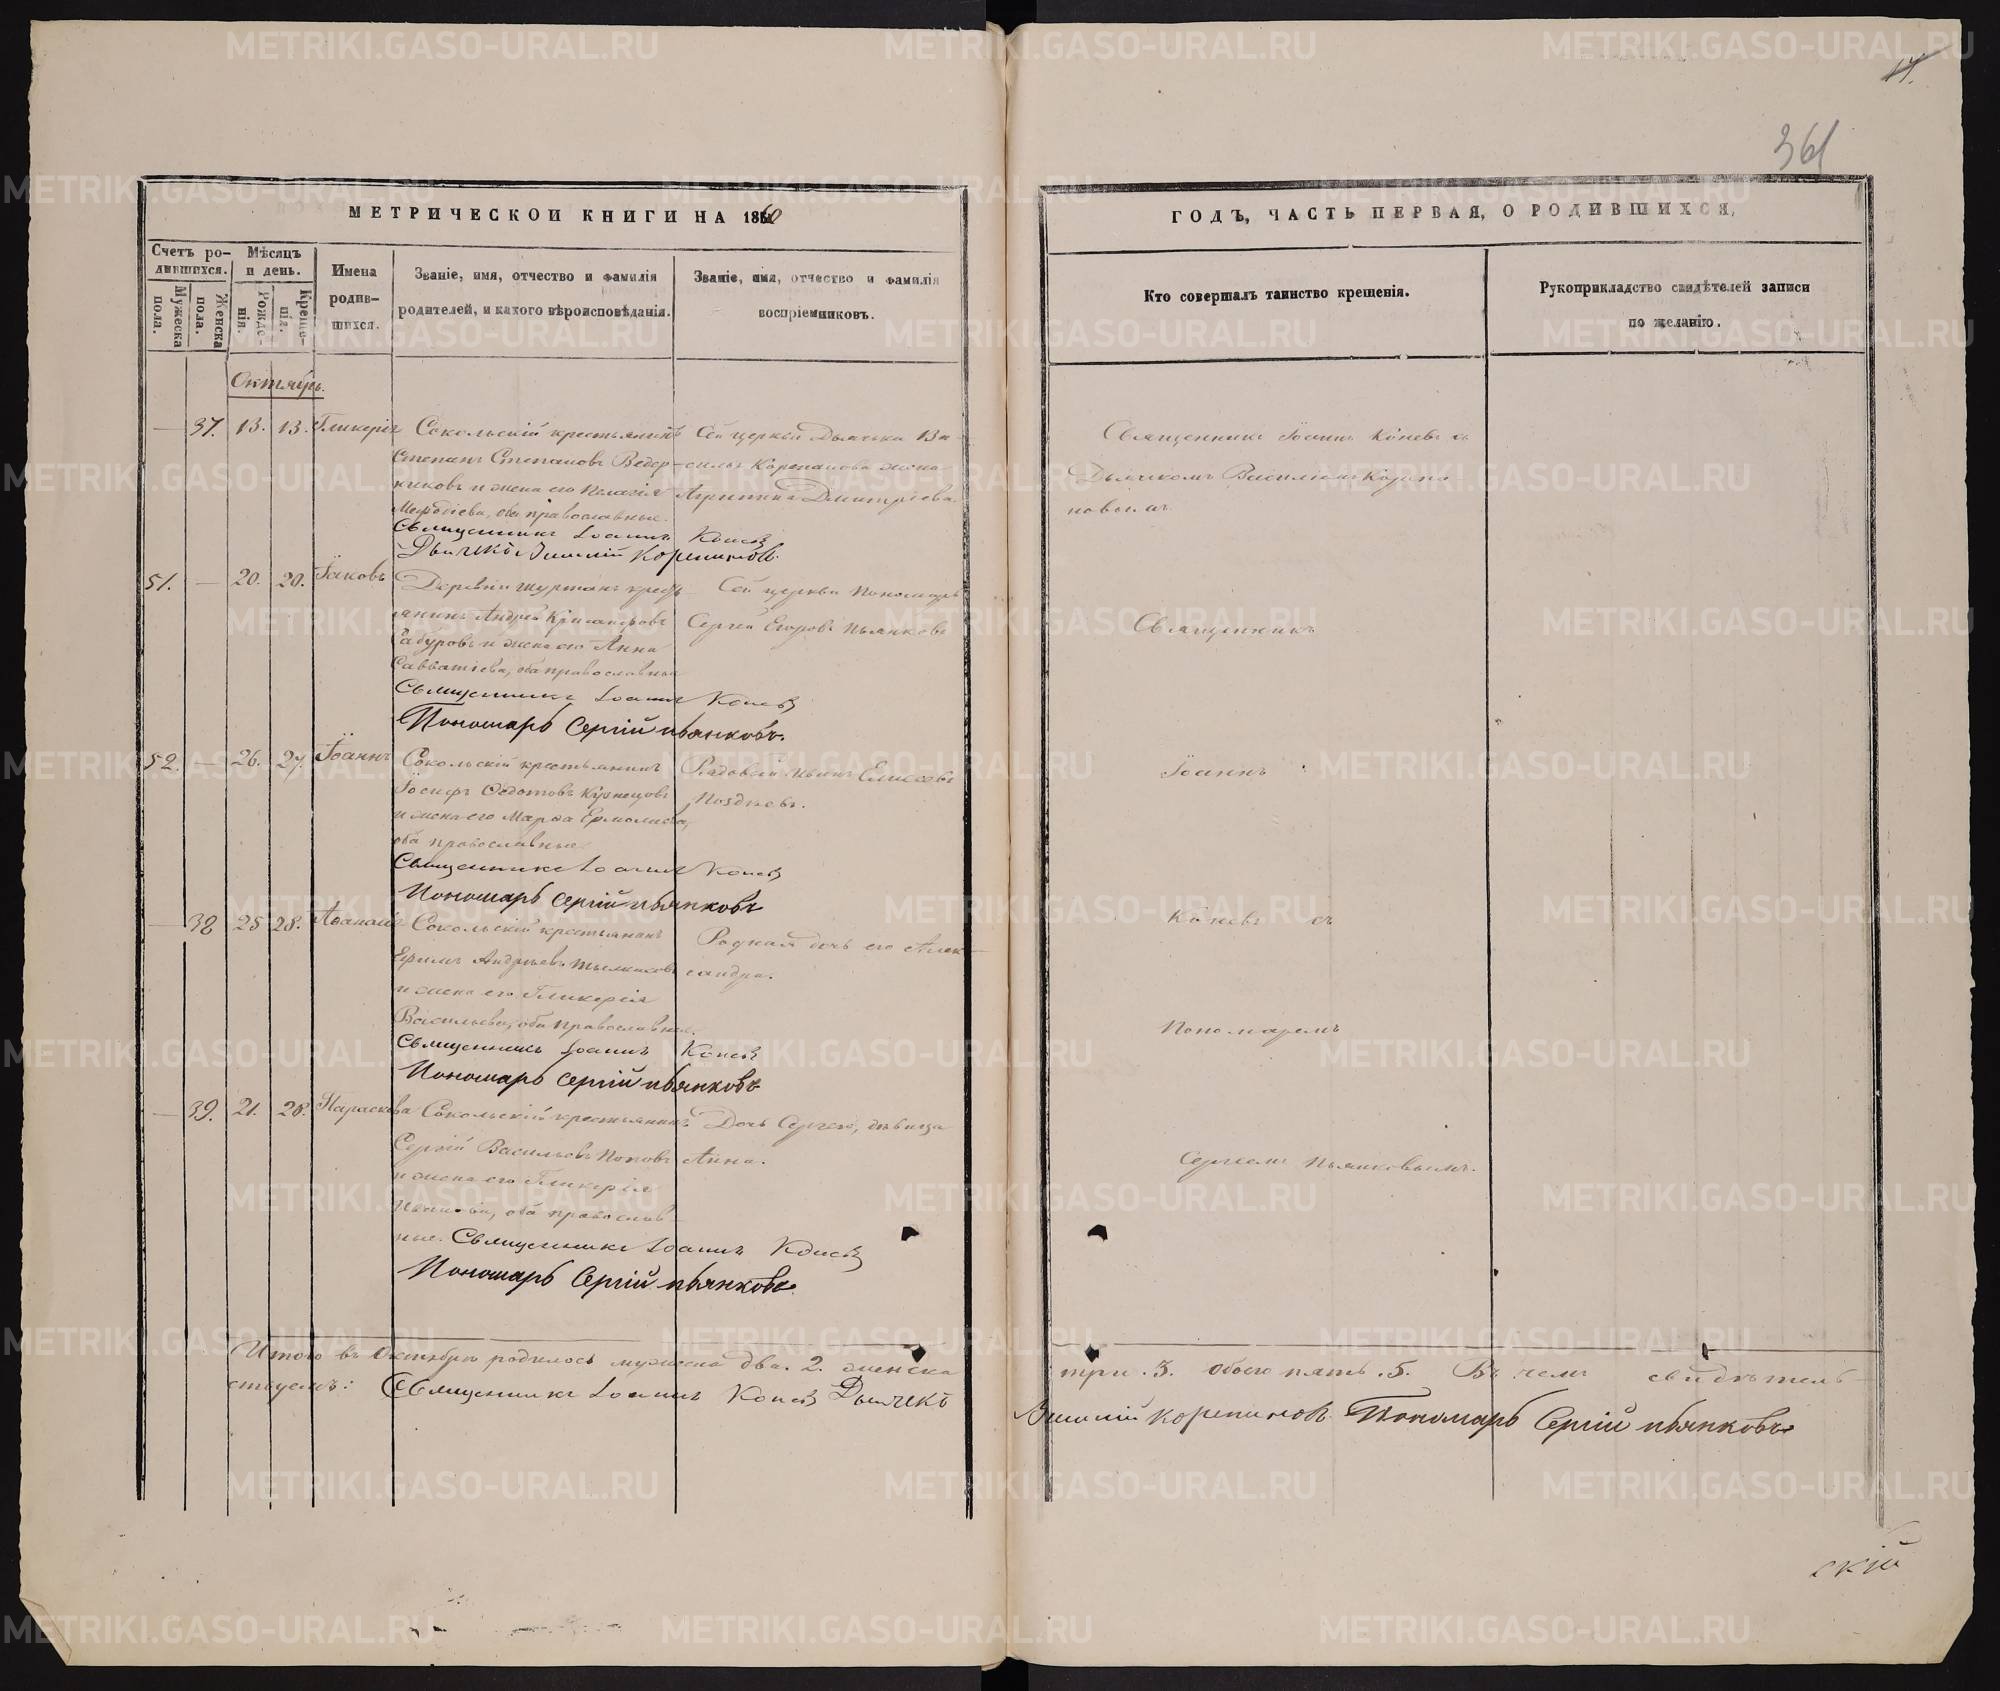 17.
361
МЕТРИЧЕСКОЙ КНИГИ НА 1860
ГОДЪ, ЧАСТЬ ПЕРВАЯ, О РОДИВШИХСЯ,
Счетъ ро-
дившихся.
Мужеска
пола.
Женска
пола.
Мѣсяцъ
и день.
Рожде-
нія.
Креще-
нія.
Имена
родив-
шихся.
Званіе, имя, отчество и фамилія
родителей, и какого вѣроисповѣданія.
Званіе, имя, отчество и фамилія
воспріемниковъ.
Кто совершалъ таинство крещенія.
Рукоприкладство свидѣтелей записи
по желанію.
Октябрь.
— 37. 13. 13. Гликерія
Сокольскій крестьянинъ
Степанъ Степановъ Ведер-
никовъ и жена его Пелагія
Меѳодіева, оба православные.
Сей церкви Дьячка Ва-
силья Корепанова жена
Агрипина Дмитріева
Священникъ Іоаннъ Коневъ
Дьячекъ Василій Корепановъ.
51. — 20. 20. Іаковъ
Деревни крестьь-
янинъ Андрей
и жена его Анна
Савватіева, оба православные
Сей церкви Пономарь
Сергей Егоровъ Пьянковъ
Священникъ Іоаннъ Коневъ
Пономарь Сергій Пьянковъ.
52. — 26. 27. Іоаннъ
Сокольскій крестьянинъ
Іосифъ Ѳедотовъ Кузнецовъ
и жена его Марѳа Ермолаева,
оба православные
Рядовой Иванъ Елисеевъ
Поздневъ.
Священникъ Іоаннъ Коневъ
Пономарь Сергій Пьянковъ
— 38 28. Аѳанасія
Сокольскій крестьянинъ
Ефимъ Андреевъ
и жена его Гликерія
Васильева, оба православные.
Родная дочь его Алек-
сандра.
Священникъ Іоаннъ Коневъ
Пономарь Сергій Пьянковъ
— 39. 21. 28. Параскева
Сокольскій крестьянинъ
Сергій Васильевъ Поповъ
и жена его Гликерія
Иванова, оба православ-
ные.
Дочь Сергею, дѣвица
Анна.
Священникъ Іоаннъ Коневъ
Пономарь Сергій Пьянковъ.
Итого въ Октябрѣ родилось мужеска два. 2. женска
ствуемъ: Священникъ Іоаннъ Коневъ Дьячекъ
Священникъ Іоаннъ Коневъ съ
Дьячкомъ Василіемъ Корепа-
новымъ
Священникъ
Іоаннъ
Коневъ съ
Пономаремъ
Сергеемъ Пьянковымъ.
три. 3. обоего пять. 5. Въ чемъ свидѣтель-
Василій Корепановъ. Пономарь Сергій Пьянковъ
скій
METRIKI.GASO-URAL.RU